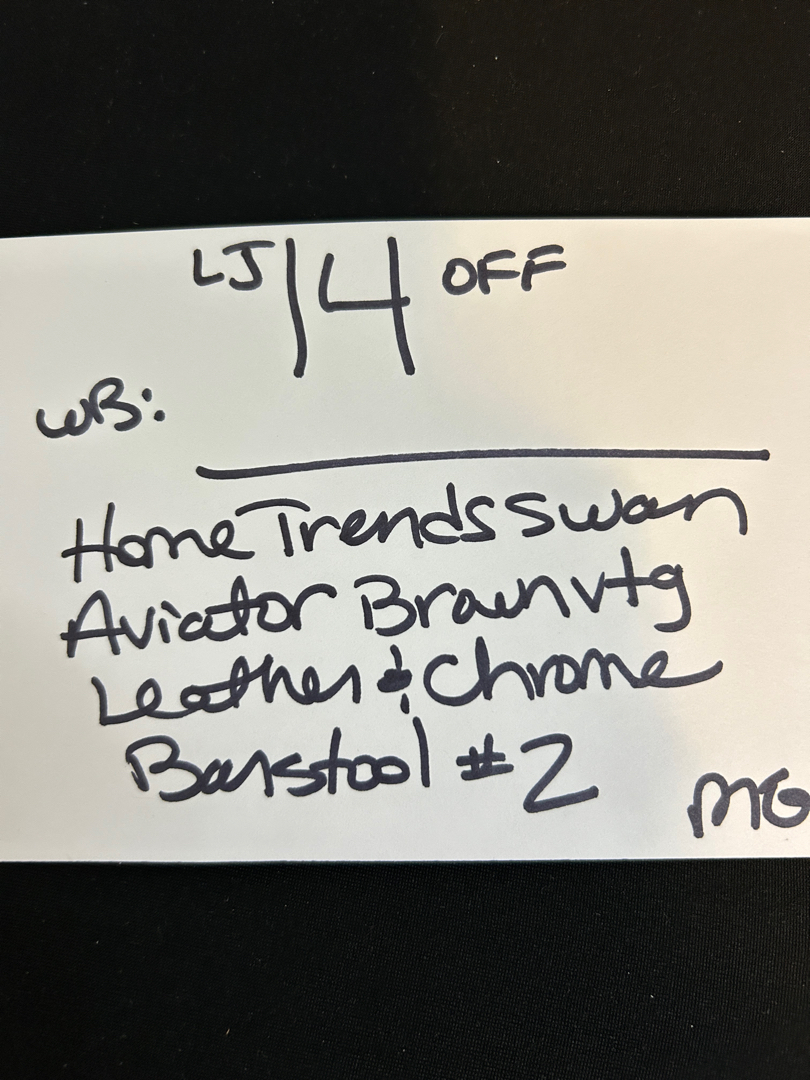 LJ 14 OFF
WB:
Home Trends Swan
Aviator Brown vtg
Leather & Chrome
Barstool #2
MG